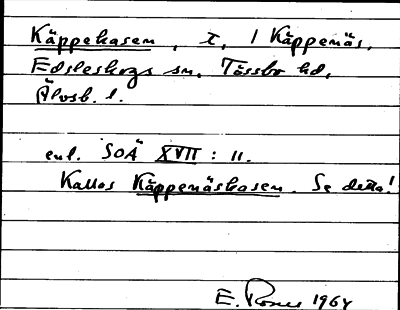 Käppehasen, t. i Käppenäs,
Edsleskogs sn. Tössbo hd.
Älvsb. l.
enl. SOÄ XVII : 11.
Kallas Käppenäshasen. Se detta!
E. Rosen 1964